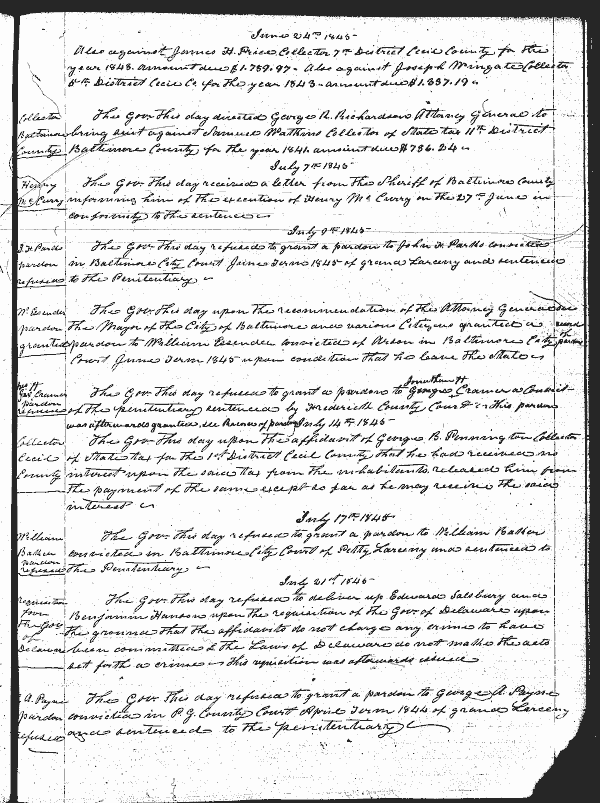 June 24th 1845
Also against James H. Price Collector 7th District Cecil County for the
year 1843. amount due $1.789.97. Also against Joseph Wingate Collector
8th District Cecil Co for the year 1843 - amount due $1.337.19
Collector
Baltimore
County
The Gov. This day directed George R. Richardson Attorney General to
bring suit against Samuel Matthews Collector of State tax 11th District
Baltimore County for the year 1841. amount due $736.24
July 7th 1845
Henry
McCurry
The Gov. This day received a letter from the Sheriff of Baltimore County
informing him of the execution of Henry McCurry on the 27th June in
conformity to the sentence
July 9th 1845
J. H. Parks
pardon
refused
The Gov. This day refused to grant a pardon to John H Parks convicted
in Baltimore City Court June Term 1845 of grand Larceny and sentenced
to the Penitentiary
Wm Esender
pardon
granted
The Gov. this day upon the recommendation of the Attorney General
the Mayor of the City of Baltimore and various Citizens granted a
pardon to William Esender convicted of Arson in Baltimore City
Court June Term 1845 upon condition that he leave the State
see
record
of
pardons
Cramer
pardon
refused
Jonathan H
The Gov. This day refused to grant a pardon to George Cramer a Convict
of the penitentiary sentenced by Frederick County Court. This pardon
was afterwards granted, see Record of pardons July 14th 1845
Collector
Cecil
County
The Gov. This day upon the affidavit of George B. Pennington Collector
of State tax for the 1st District Cecil County that he had received no
interest upon the said tax from the inhabitants released him from
the payment of the same except so far as he may receive the said
interest
July 17th 1845
William
Baker
pardon
refused
The Gov. This day refused to grant a pardon to William Baker
convicted in Baltimore City Court of Petty Larceny and sentenced to
the Penitentiary
July 21st 1845
requisition
from
the Gov
of
Delaware
The Gov. This day refused to deliver up Edward Salsbury and
Benjamin Hanson upon the requisition of the Gov. of Delaware upon
the ground that the affidavits do not charge any crime to have
been committed & the Laws of Delaware do not make the acts
set forth a crime - This requisition was afterwards issued
G A. Payne
pardon
refused
The Gov. This day refused to grant a pardon to George A Payne
convicted in P. G. County Court April Term 1844 of grand Larceny
and sentenced to the penitentiary